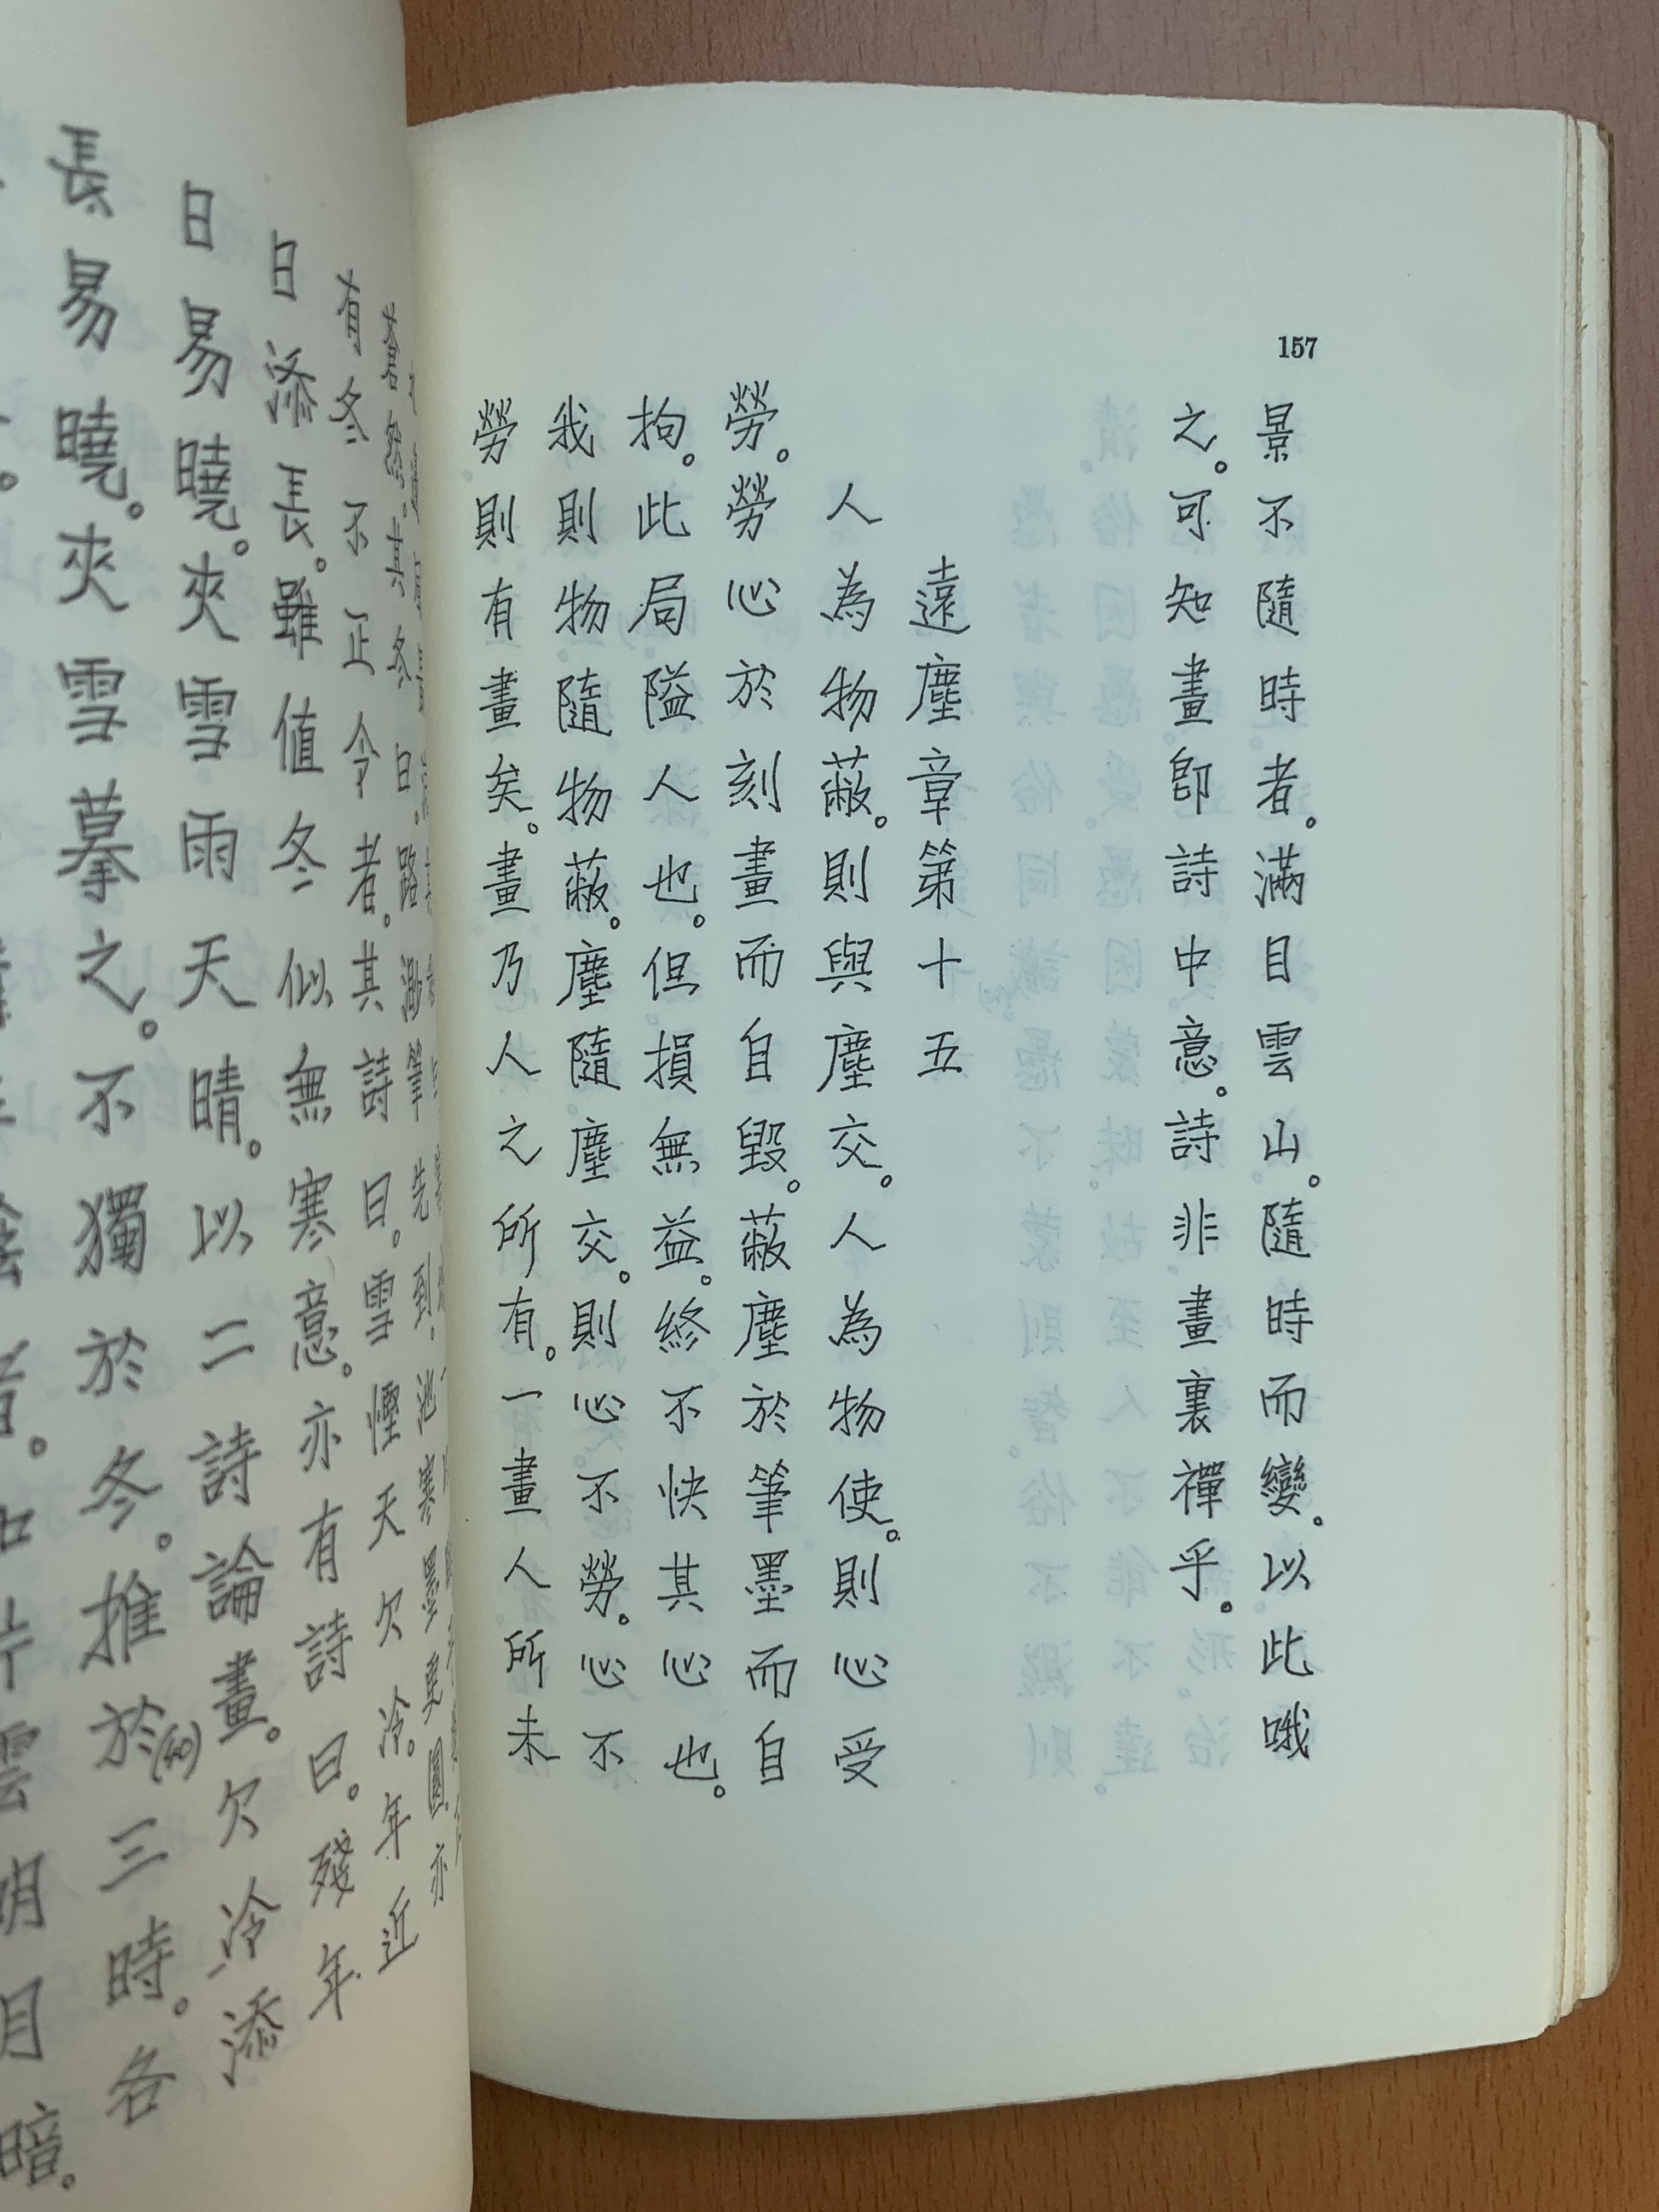 157
景不隨時者。滿目雲山。隨時而變。以此哦
之。可知畫卽詩中意。詩非畫裏禪乎。
遠塵章第十五
人為物蔽。則與塵交。人為物使。則心受
勞。勞心於刻畫而自毀。蔽塵於筆墨而自
拘。此局隘人也。但損無益。終不快其心也。
我則物隨物蔽。塵隨塵交。則心不勞。心不
勞則有畫矣。畫乃人之所有。一畫人所未
蒼然。其冬日。路渺筆先到。池寒墨更圓。亦
有冬不正令者。其詩曰。雪慳天欠冷。年近
日添長。雖值冬似無寒意。亦有詩曰。殘年
日易曉。夾雪雨天晴。以二詩論畫。欠冷添
長易曉。夾雪摹之。不獨於冬。推於(50)三時。各
片雲明月暗。